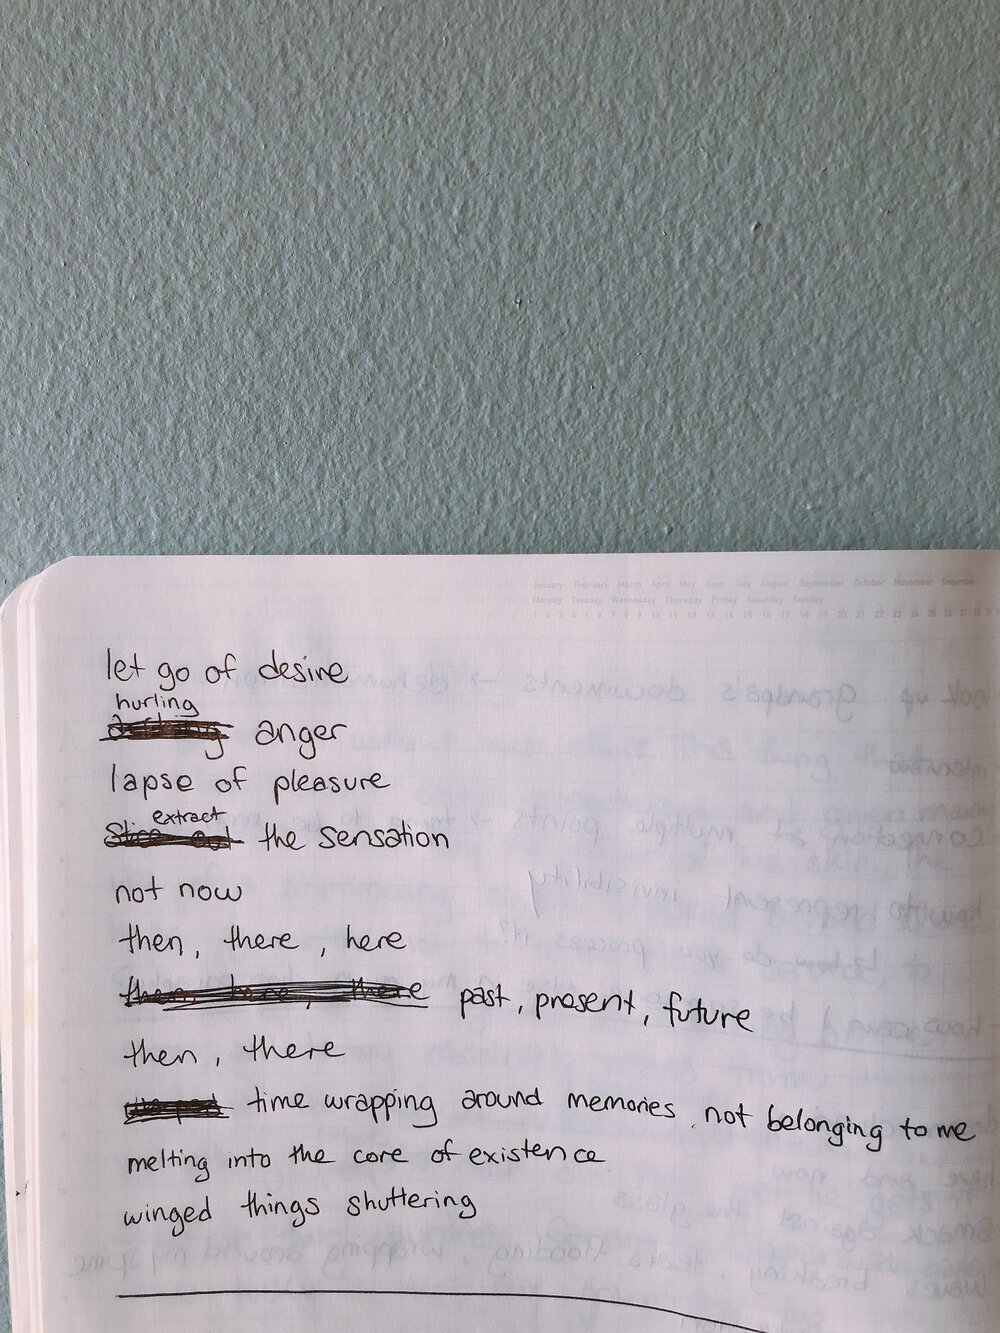 January February March April May June July August September October November December
Monday Tuesday Wednesday Thursday Friday Saturday Sunday
1 2 3 4 5 6 7 8 9 10 11 12 13 14 15 16 17 18 19 20 21 22 23 24 25 26 27 28
let go of desire
hurling
anger
lapse of pleasure
extract
the sensation
not now
then, there, here
then, here, there past, present, future
then, there
time wrapping around memories not belonging to me
melting into the core of existence
winged things shuttering